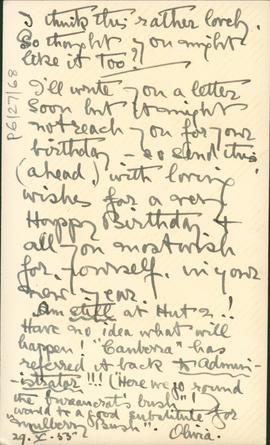 I think this rather lovely.
So thought you might
like it too?
I'll write you a letter
soon but it might
not reach you for your
birthday - so send this
(ahead) with loving
wishes for a very
Happy Birthday &
all you most wish
for yourself. in your
new year.
Am still at Hut 2!!
Have no idea what will
happen! "Canberra" has
referred it back to Admin-
istrator!!! (Here we go round
the bureaucrat's bush")
would be a good substitute for
"mulberry Bush".
29. X. 53 Olivia.
P6/27/68